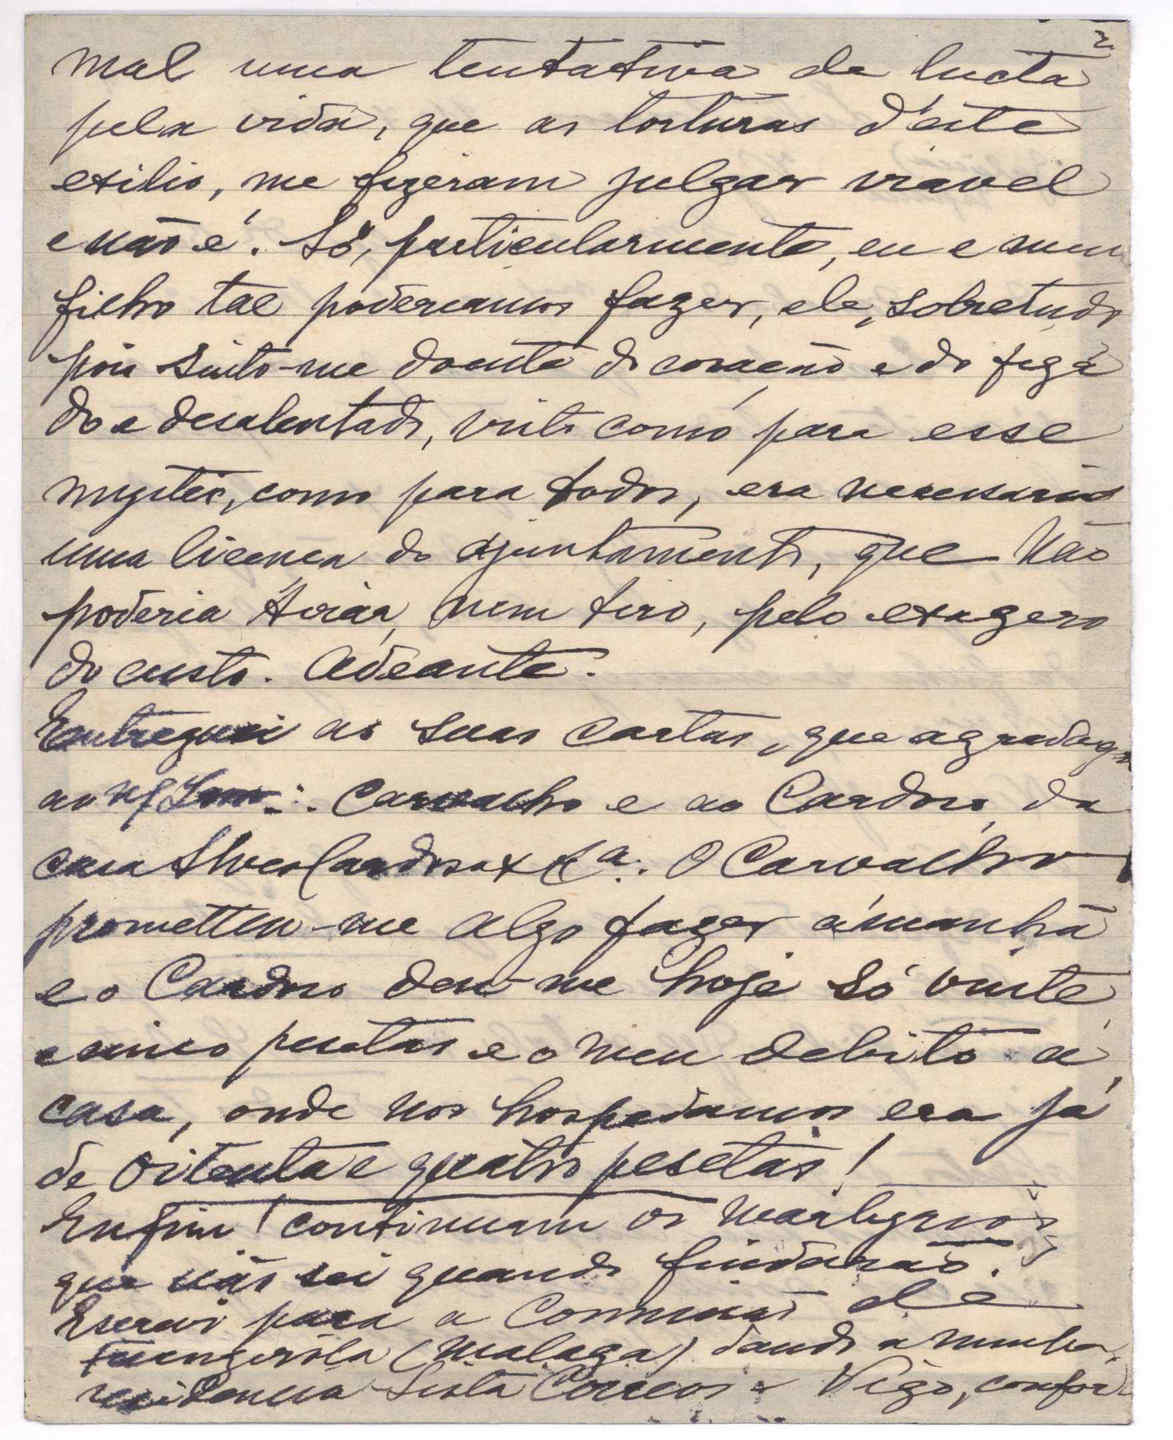 2
mal uma tentativa de lucta
pela vida, que as torturas d'este
exilio, me fizeram julgar viavel
e não é. Só, particularmente, eu e meu
filho tal poderiamos fazer, ele, sobretudo
pois sinto-me doente do coração e do figa
do e desalentado, visto como para esse
mystér, como para todos, era necessario
uma licença do ajuntamento, que não
poderia tirar, nem tiro, pelo exagero
do custo. Adeante.
Entreguei as suas cartas, que agradeço
ao Carvalho e ao Cardoso, da
casa Alves Cardoso & Cª. O Carvalho
prometteu-me algo fazer ámanhã
e o Cardoso deu-me hoje só vinte
e cinco pesetas e o meu debito á
casa, onde nos hospedamos era já
de oitenta e quatro pesetas!
Enfim! continuam os martyrios
que não sei quando findarão.
Escrevi para a Commissão de
Fuengirola (Malaga) dando a minha
residencia Lista Correos - Vigo, confor